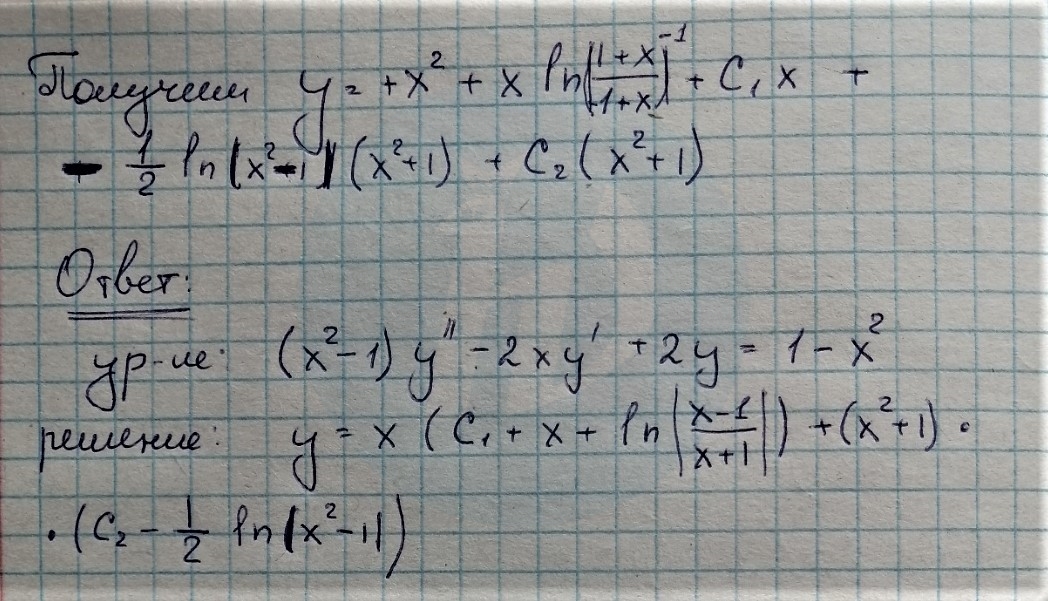 Получим y = +x² + x ln|(1+x)/(1+x)|⁻¹ + C₁x +
- 1/2 ln|x²-1| (x²+1) + C₂(x²+1)
Ответ:
ур-ие: (x²-1) y'' - 2xy' + 2y = 1 - x²
решение: y = x (C₁ + x + ln|(x-1)/(x+1)|) + (x²+1) ·
· (C₂ - 1/2 ln|x²-1|)